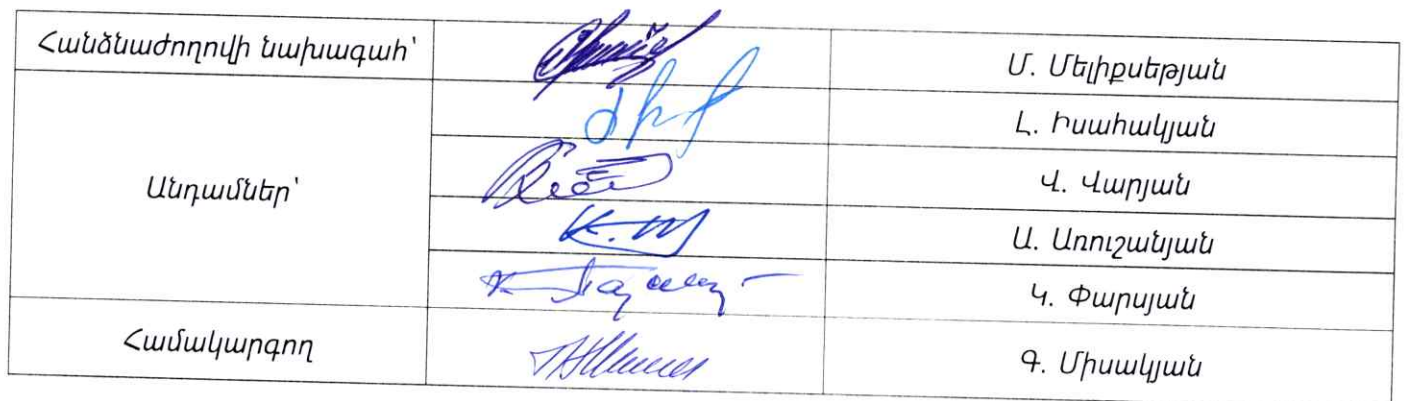 Հանձնաժողովի նախագահ՝
Մ. Մելիքսեթյան
Լ. Իսահակյան
Վ. Վարյան
Անդամներ՝
Ա. Առուշանյան
Կ. Փարսյան
Համակարգող
Գ. Միսակյան